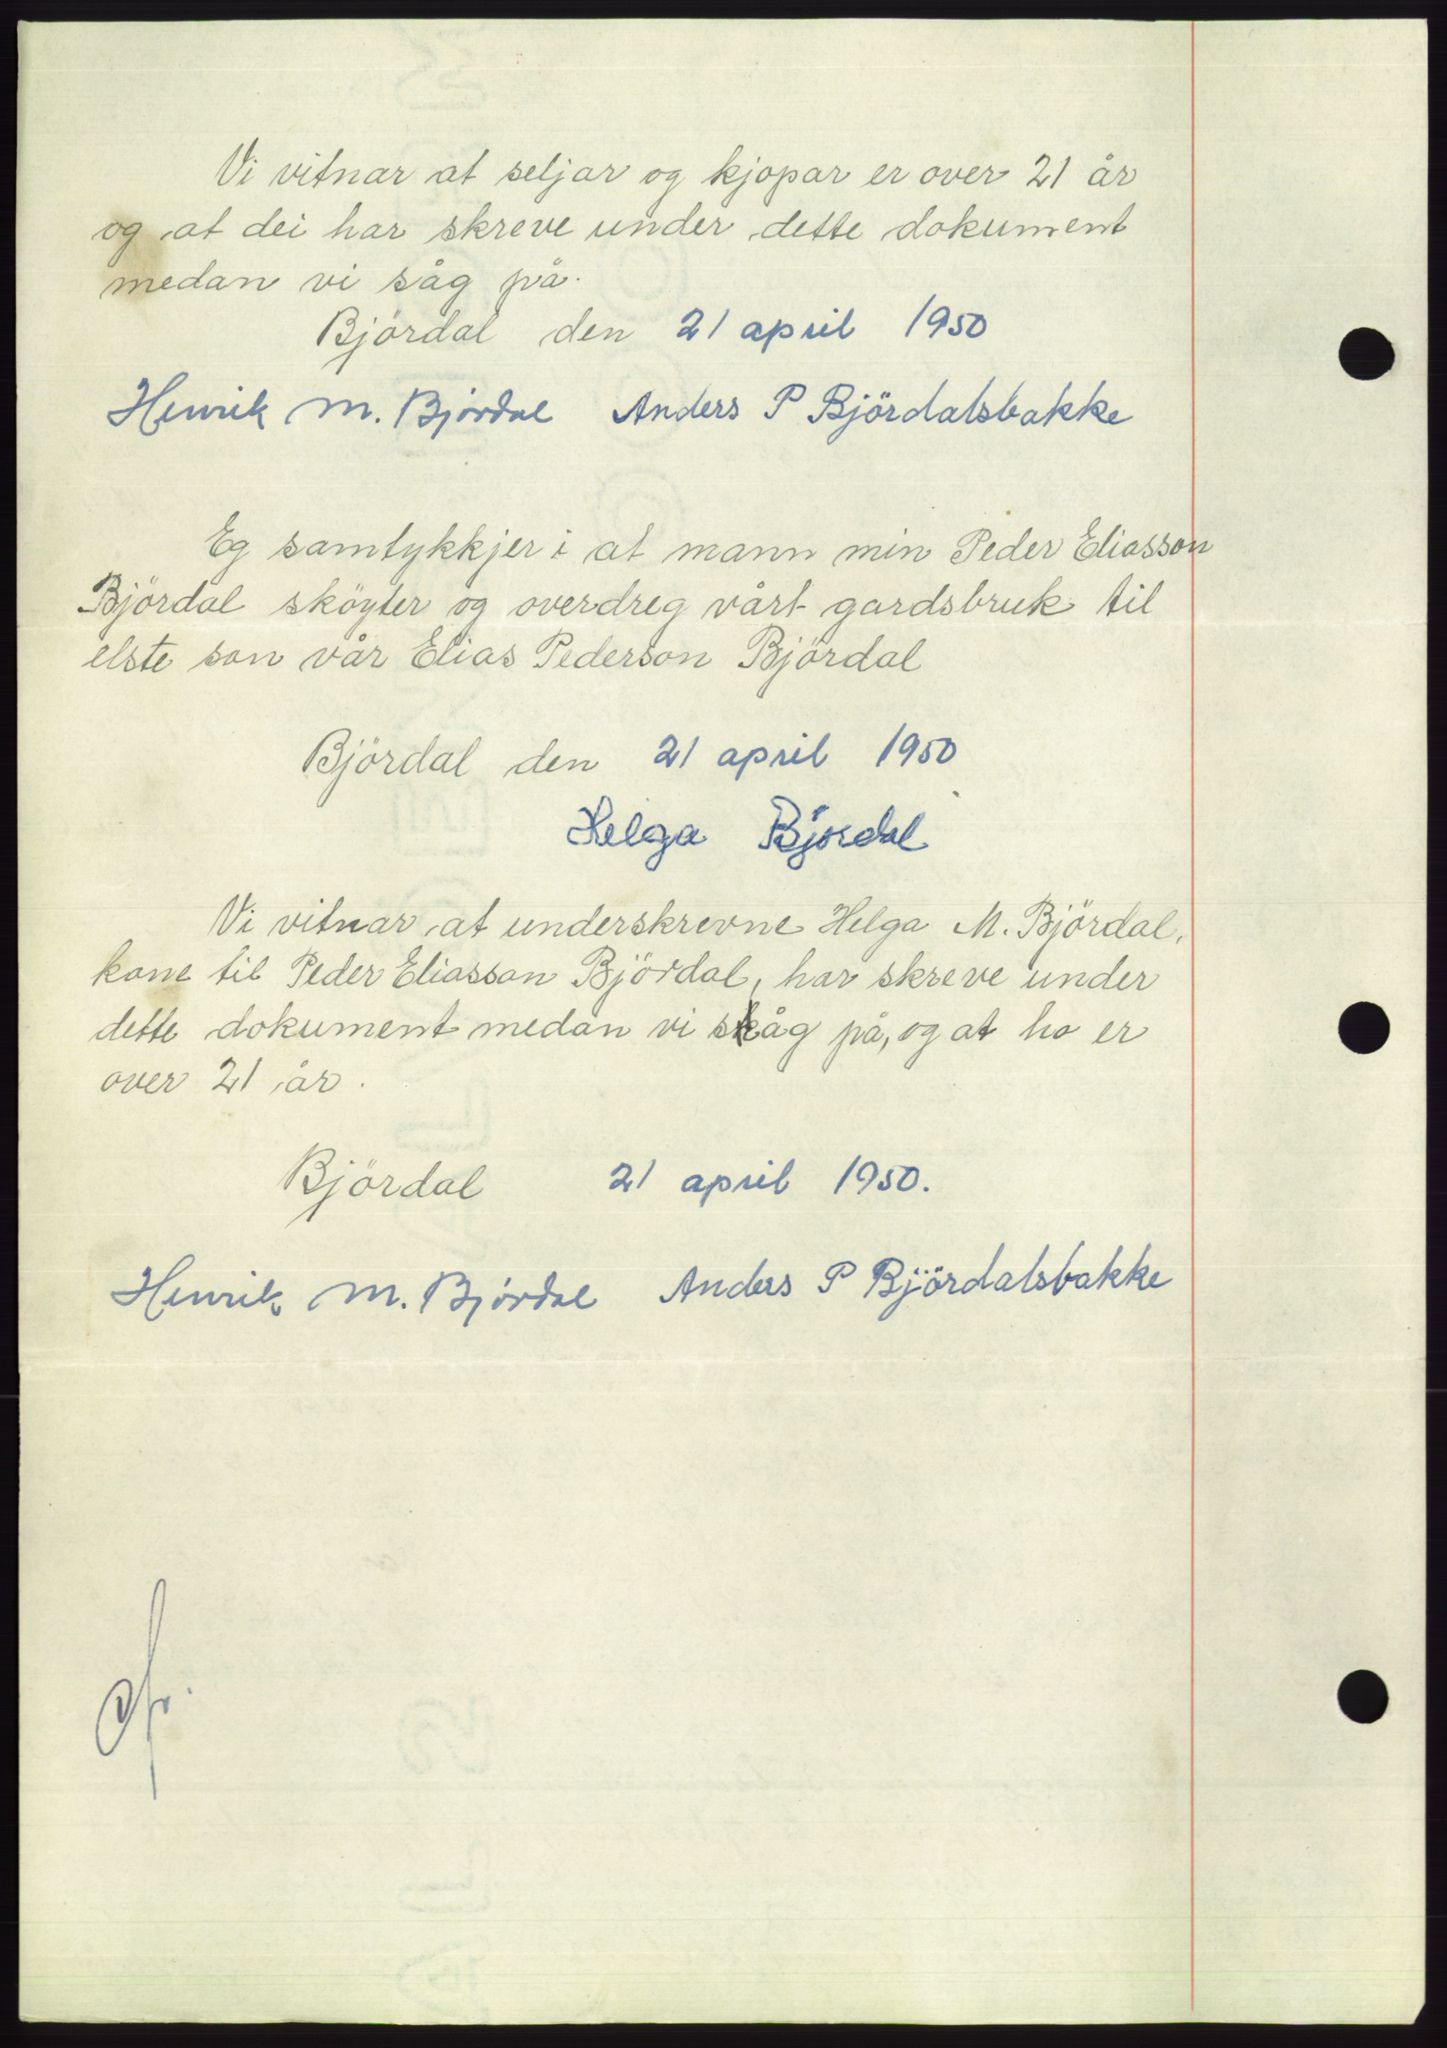 Vi vitnar at seljar og kjopar er over 21 år
og at dei har skreve under dette dokument
medan vi såg på.
Björdal den 21 april 1950
Henrik M. Bjørdal Anders P Björdalsbakke
Eg samtykkjer i at mann min Peder Eliasson
Björdal sköyter og overdreg vårt gardsbruk til
elste son vår Elias Pederson Björdal
Björdal den 21 april 1950
Helga Bjørdal
Vi vitnar at underskrevne Helga M. Björdal,
kone til Peder Eliasson Björdal, har skreve under
dette dokument medan vi såg på, og at ho er
over 21 år.
Björdal 21 april 1950.
Henrik M. Bjørdal Anders P Björdalsbakke